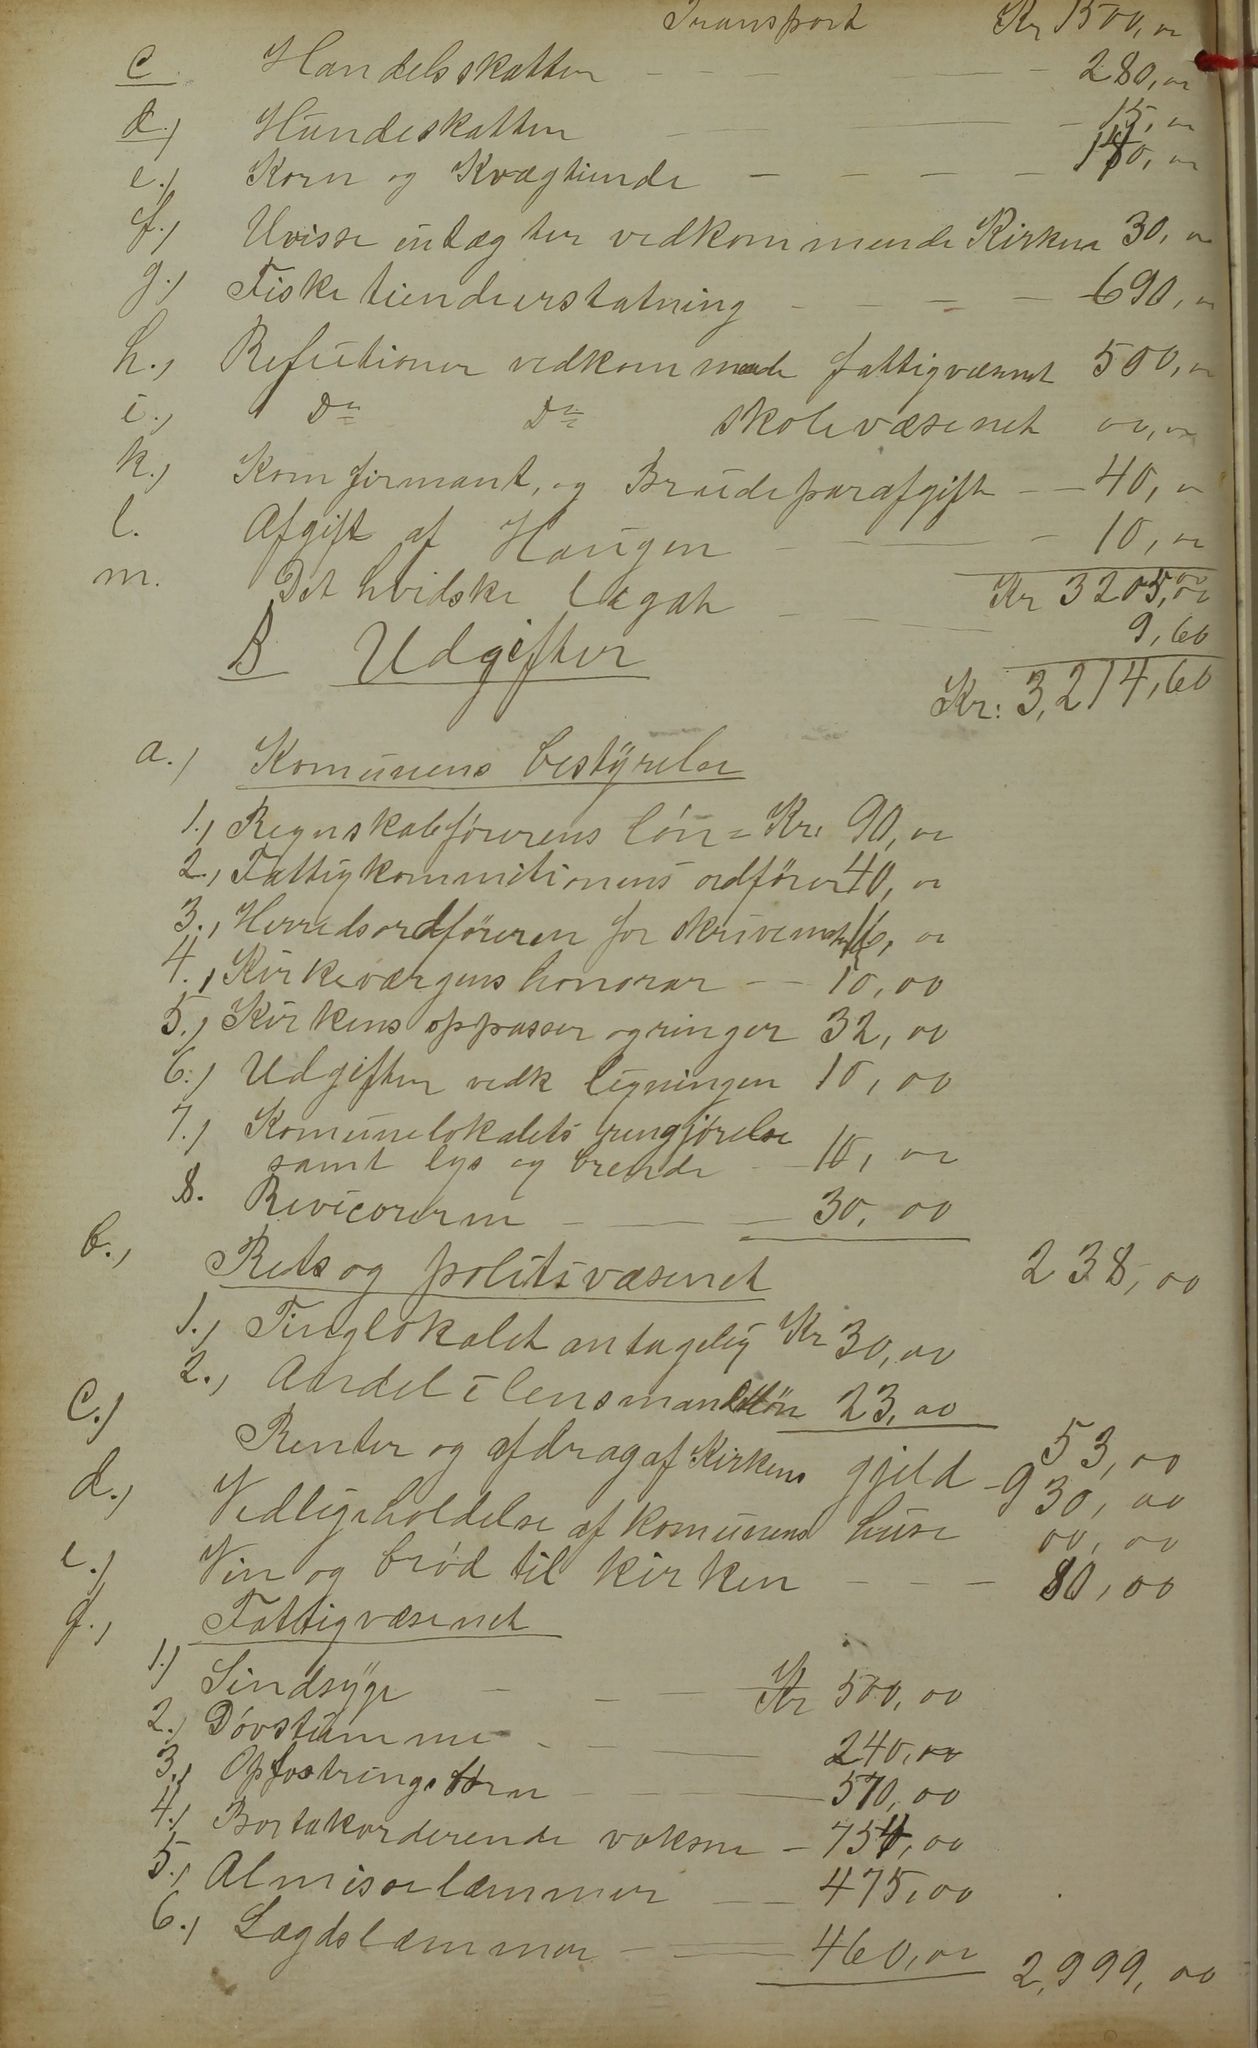 Transport Kr 1500,00
c Handelsskatten 280,00
d.) Hundeskatten 15,00
e.) Korn og Kvægtiende 140,00
f.) Uvisse intægter vedkommende Kirken 30,00
g.) Fisketiendeerstatning 690,00
h., Refutioner vedkommende fattigvæsenet 500,00
i., Do Do skolevæsenet 00,00
k., Komfirmant, og Brudeparafgift 40,00
l. Afgift af Haugen 10,00
Kr 3205,00
m. Det hvidske legat 9,60
B Udgifter
Kr: 3,214,60
a.) Komunens bestyrelse
1., Regnskabsførerens løn = Kr: 90,00
2., Fattigkommitionens ordfører 40,00
3., Herredsordføreren for skrivemat 16,00
4., Kirkeværgens honorar 10,00
5., Kirkens oppasser og ringer 32,00
6., Udgifter vedk ligningen 10,00
7., Komunelokalets rengjørelse
samt lys og brende 10,00
8. Revicorerne 30,00
238,00
b., Rets og politivæsenet
1., Tinglokalet antagelig Kr 30,00
2., Andel i lensmandsløn 23,00
53,00
c.) Renter og afdrag af Kirkens gjeld 930,00
d., Vedligeholdelse af komunens huse 00,00
e.) Vin og brød til kirken 80,00
f., Fattigvæsenet
1.) Sindsyge Kr 500,00
2., Døvstumme 240,00
3., Opfostringsbørn 570,00
4., Bortakorderende voksne 754,00
5., Almisselæmmer 475,00
6., Lægdslæmmer 460,00 2,999,00